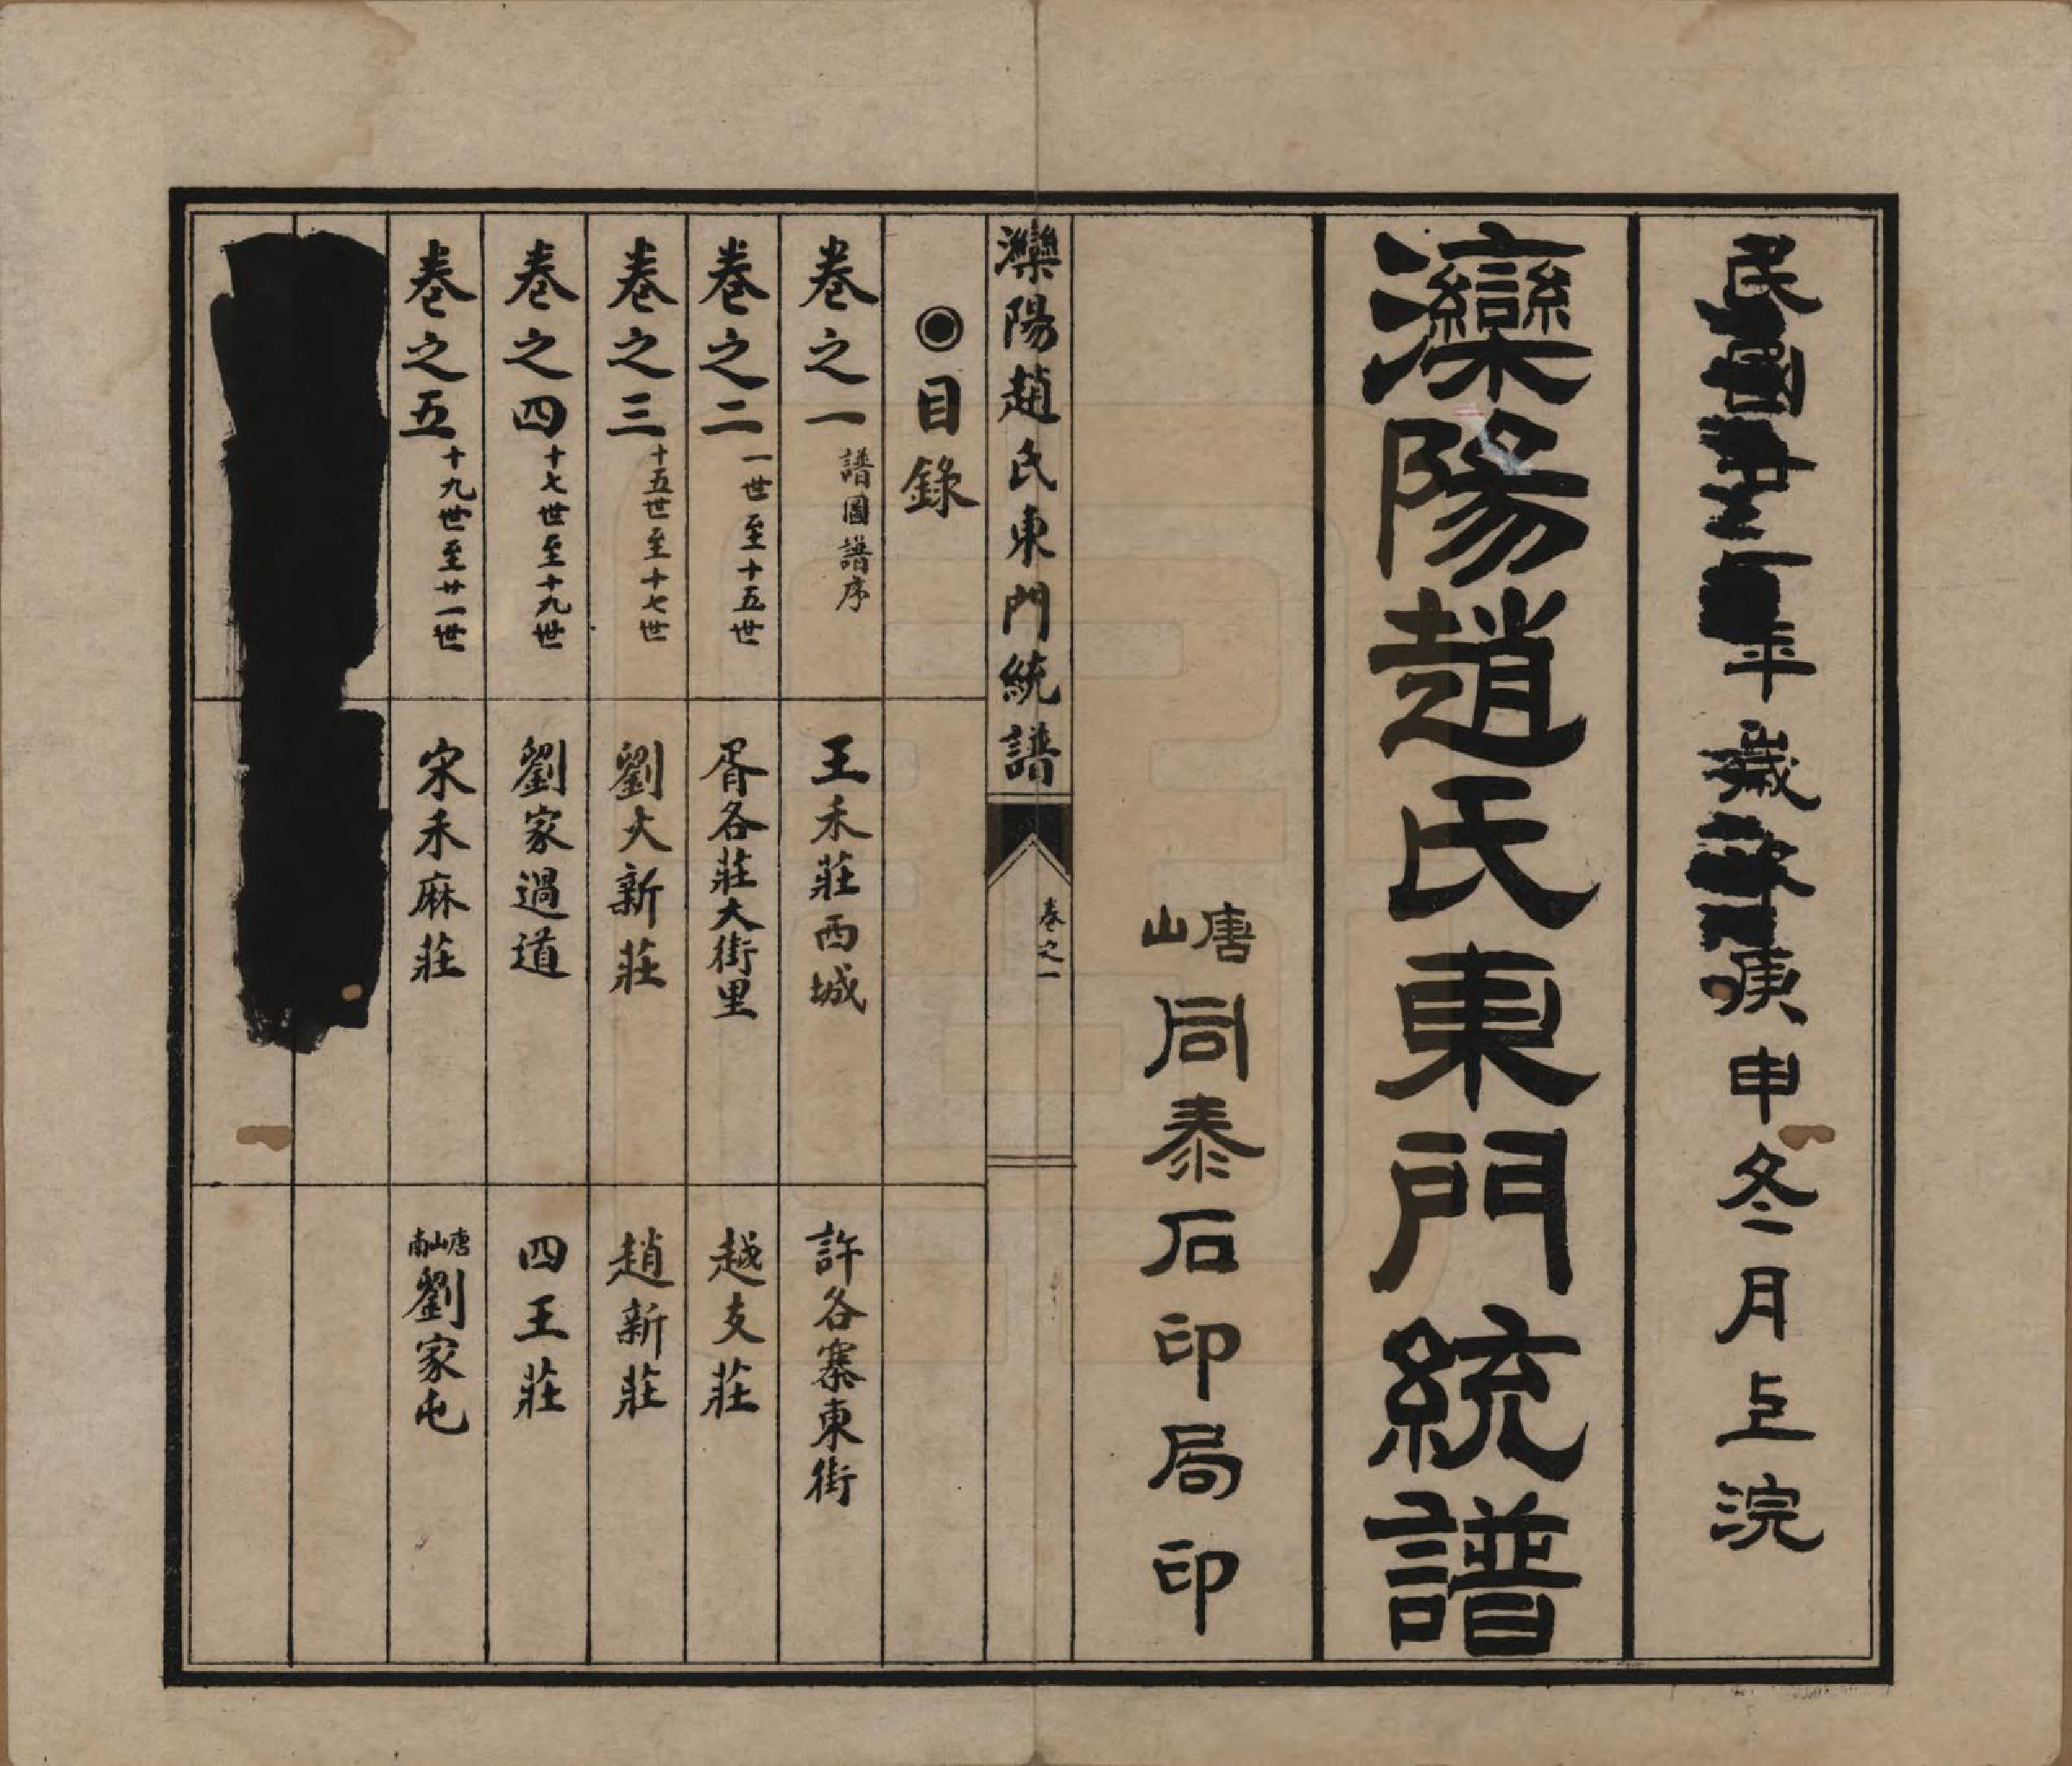 民國
年歲
庚申冬月上浣
灤陽趙氏東門統譜
唐山同泰石印局印
灤陽趙氏東門統譜
卷之一
◉目錄
卷之一 譜圖譜序 王禾莊西城 許各寨東街
卷之二 一世至十五世 胥各莊大街里 越支莊
卷之三 十五世至十七世 劉大新莊 趙新莊
卷之四 十七世至十九世 劉家過道 四王莊
卷之五 十九世至廿一世 宋禾麻莊 唐山南劉家屯